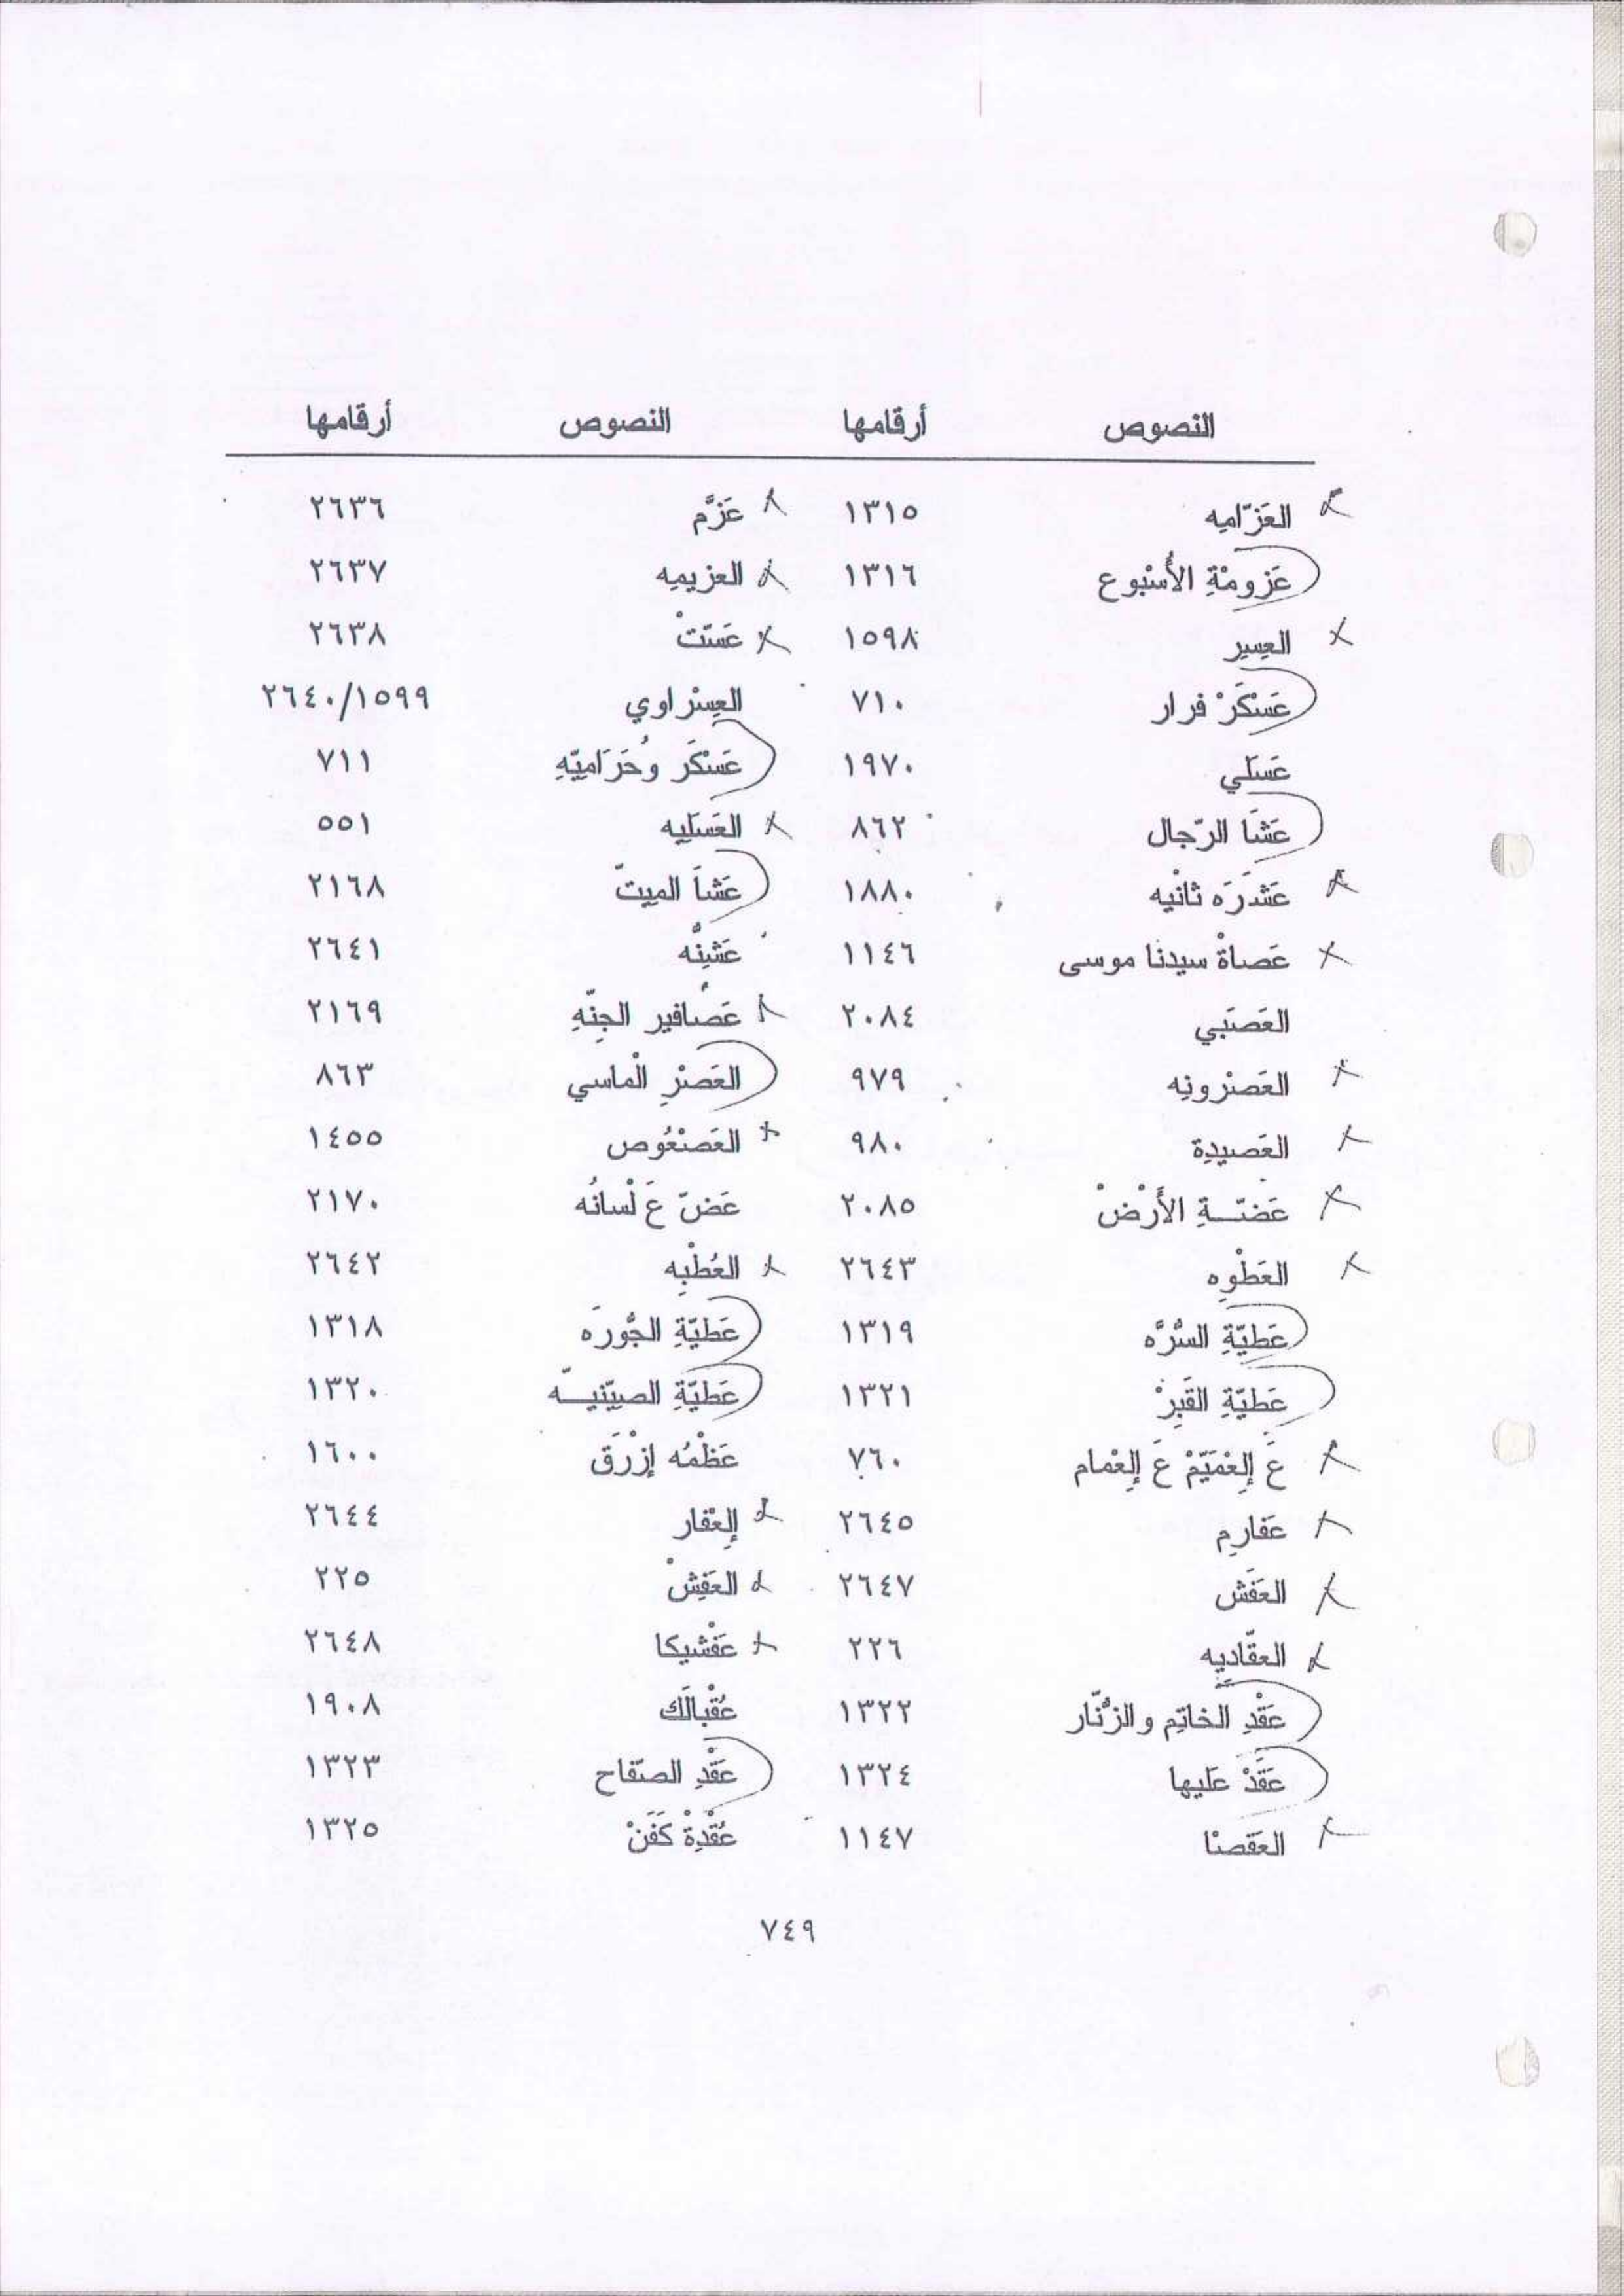 النصوص أرقامها النصوص أرقامها
العَزّامِيه ١٣١٥ عَزَّم ٢٦٣٦
عَزومْةِ الأُسْبوع ١٣١٦ العزيمِه ٢٦٣٧
العِسِر ١٥٩٨ عَسّتْ ٢٦٣٨
عَسْكَرْ فرار ٧١٠ العِسْراوي ٢٦٤٠/١٥٩٩
عَسَلي ١٩٧٠ عَسْكَر وُحَرَاميّهِ ٧١١
عَشَا الرّجال ٨٦٢ العَسَلِيه ٥٥١
عَشَرَه ثانْيه ١٨٨٠ عَشاَ الميِتّ ٢١٦٨
عَصاةْ سيدنا موسى ١١٤٦ عَشِنُّه ٢٦٤١
العَصَبي ٢٠٨٤ عَصَافير الجِنّهِ ٢١٦٩
العَصْرونِه ٩٧٩ العَصْرِ الْماسي ٨٦٣
العَصيدِة ٩٨٠ العَصْعُوص ١٤٥٥
عَضّـةِ الأَرْضْ ٢٠٨٥ عَضّ عَ لْسانُه ٢١٧٠
العَطْوِه ٢٦٤٣ العُطْبِه ٢٦٤٢
عَطيّةِ السُّرَّه ١٣١٩ عَطيّةِ الجُّورَه ١٣١٨
عَطيّةِ القَبِرْ ١٣٢١ عَطيّةِ الصيّنيـّه ١٣٢٠
عَ إلِعْمَيّمْ عَ إلِعْمام ٧٦٠ عَظْمُه إزْرَق ١٦٠٠
عَفارِم ٢٦٤٥ إلِعْقار ٢٦٤٤
العَفَش ٢٦٤٧ العَفِشْ ٢٢٥
العقّادِيِه ٢٢٦ عَفْشيكا ٢٦٤٨
عَقْدِ الخاتِم والزُنّار ١٣٢٢ عُقْبالَك ١٩٠٨
عَقَدْ عَليها ١٣٢٤ عَقْدِ الصّفاح ١٣٢٣
العَقصَا ١١٤٧ عُقْدِةْ كَفَنْ ١٣٢٥
٧٤٩